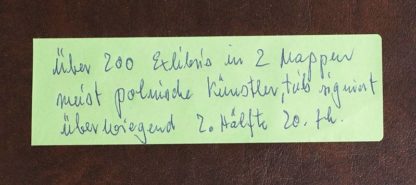 Über 200 Exlibris in 2 Mappen
meist polnische Künstler, tils signiert
überwiegend 2. Hälfte 20. Jh.